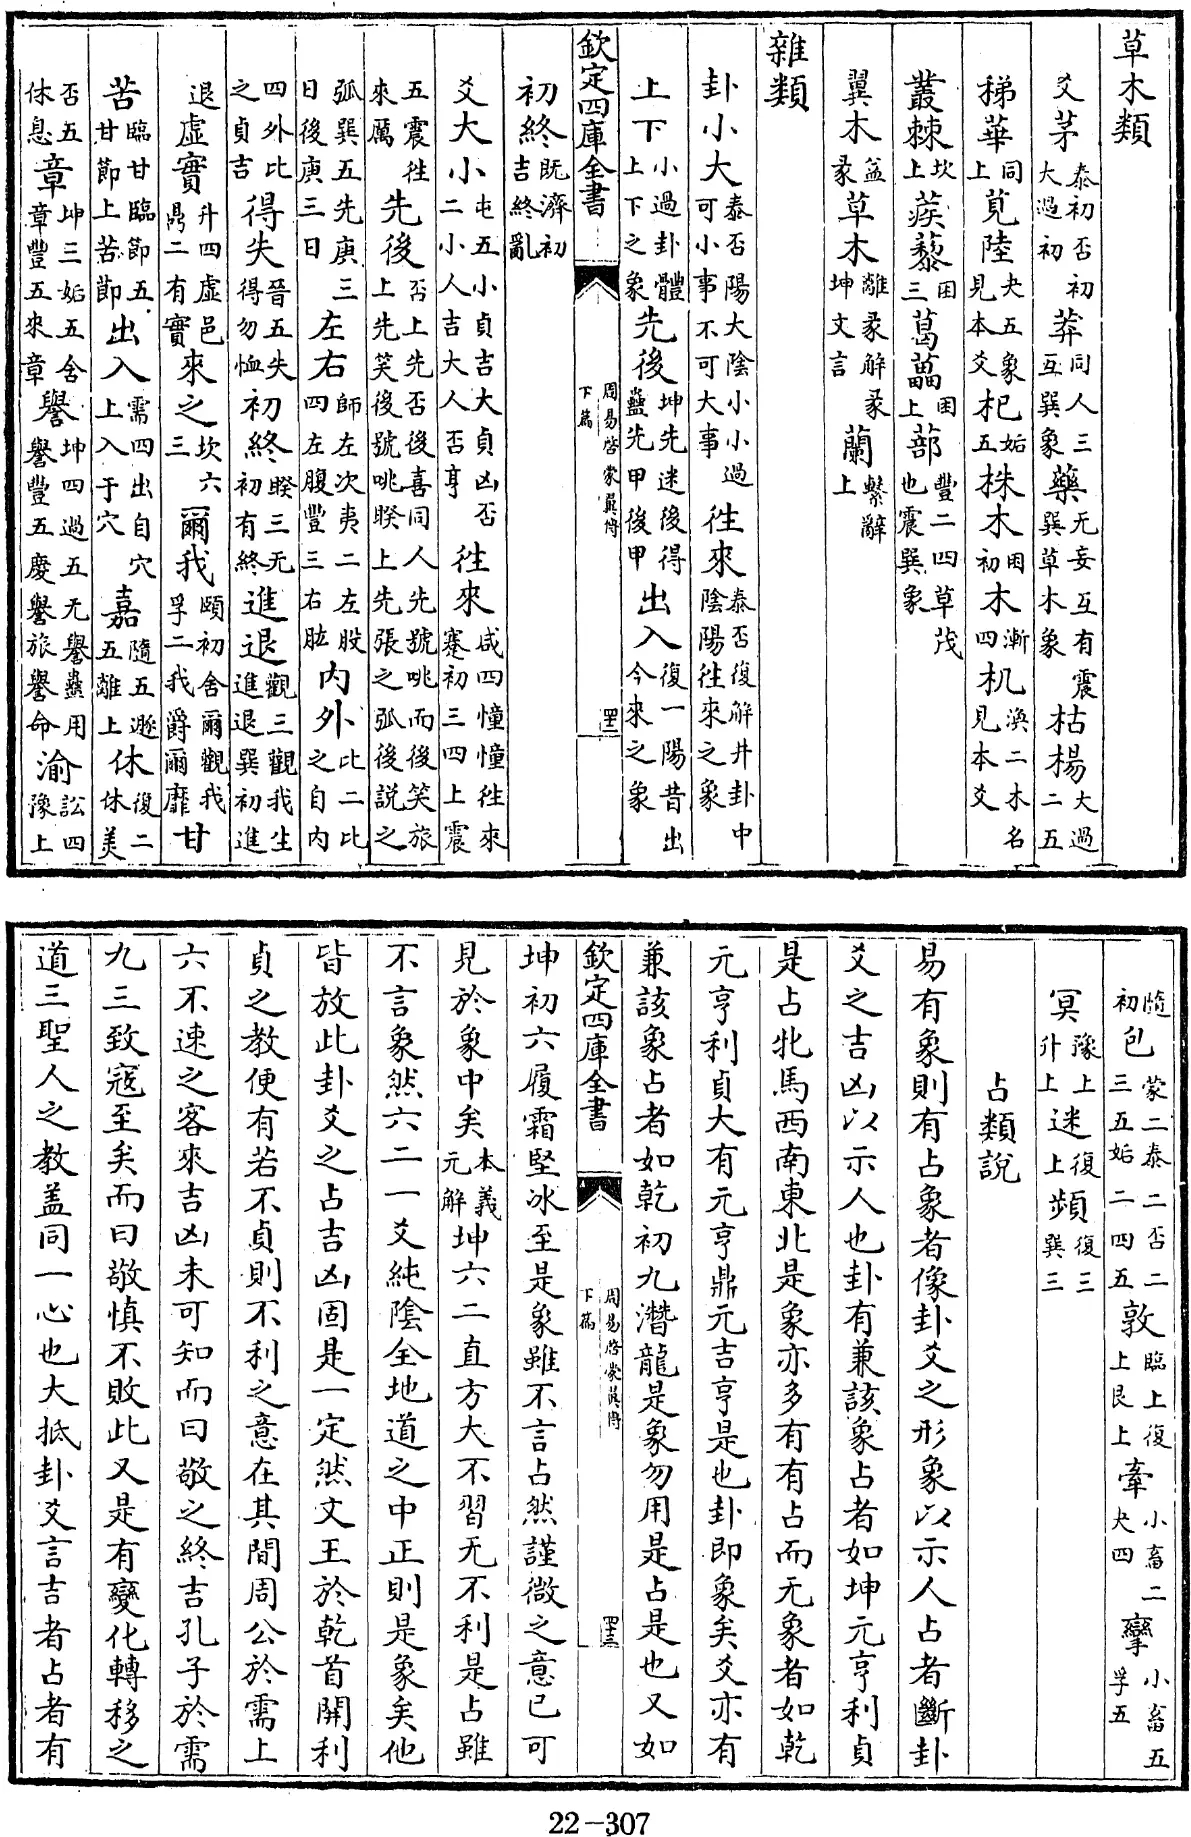 草木類
爻茅泰初否初大過初莽同人三互巽象藥无妄互有震巽草木象枯楊大過二五
稊華同上莧陸夬五象見本爻杞姤五株木困初木漸四机渙二木名見本爻
叢棘坎上蒺藜困三葛藟困上蔀豐二四草茂也震巽象
巽木益彖草木離彖解彖坤文言蘭繫辭上
雜類
卦小大泰否陽大陰小小過可小事不可大事往來泰否復解井卦中陰陽往來之象
上下小過卦體上下之象先後坤先迷後得蠱先甲後甲出入復一陽昔出今來之象
欽定四庫全書
周易啓蒙翼傳下篇
四十二
初終既濟初吉終亂
爻大小屯五小貞吉大貞凶否二小人吉大人否亨往來咸四憧憧往來蹇初三四上震
五震往來厲先後否上先否後喜同人先號咷而後笑旅上先笑後號咷睽上先張之弧後説之
弧巽五先庚三日後庚三日左右師左次夷二左股四左腹豐三右肱内外比二比之自内
四外比之貞吉得失晉五失得勿恤初終睽三无初有終進退觀三觀我生進退巽初進
退虛實升四虛邑鼎二有實來之坎六三爾我頤初舍爾觀我孚二我爵爾靡甘
苦臨甘臨節五甘節上苦節出入需四出自穴上入于穴嘉隨五遯五離上休復二休美
否五休息章坤三姤五含章豐五來章譽坤四過五无譽蠱用譽豐五慶譽旅譽命渝訟四豫上
隨初包蒙二泰二否二三五姤二四五敦臨上復上艮上牽小畜二夬四攣小畜五孚五
冥豫上升上迷復上頻復三巽三
占類説
易有象則有占象者像卦爻之形象以示人占者斷卦
爻之吉凶以示人也卦有兼該象占者如坤元亨利貞
是占牝馬西南東北是象亦多有有占而无象者如乾
元亨利貞大有元亨鼎元吉亨是也卦即象矣爻亦有
兼該象占者如乾初九潛龍是象勿用是占是也又如
欽定四庫全書
周易啓蒙翼傳下篇
四十三
坤初六履霜堅冰至是象雖不言占然謹微之意已可
見於象中矣本義元解坤六二直方大不習无不利是占雖
不言象然六二一爻純陰全地道之中正則是象矣他
皆放此卦爻之占吉凶固是一定然文王於乾首開利
貞之教便有若不貞則不利之意在其間周公於需上
六不速之客來吉凶未可知而曰敬之終吉孔子於需
九三致寇至矣而曰敬慎不敗此又是有變化轉移之
道三聖人之教盖同一心也大抵卦爻言吉者占者有
22-307